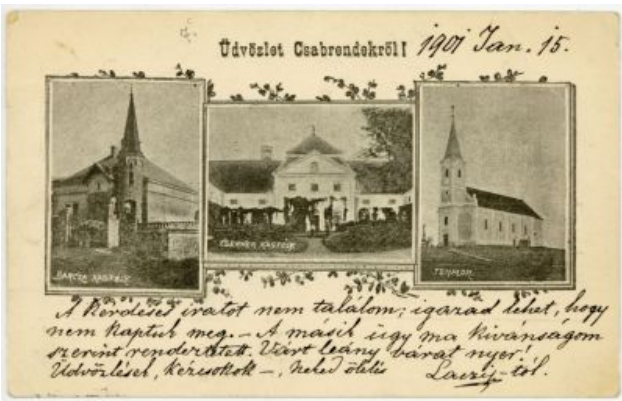 Üdvözlet Csabrendekről! 1901 Jan. 15.
KASTÉLY
KASTÉLY
TEMPLOM
A kérdéses iratot nem találom; igazad lehet, hogy
nem kaptuk meg. – A másik ügy ma kivánságom
szerint rendeztetett. Várt leány várat nyer!
Üdvözlések, kézcsókok –, neked ölelés
-tól.